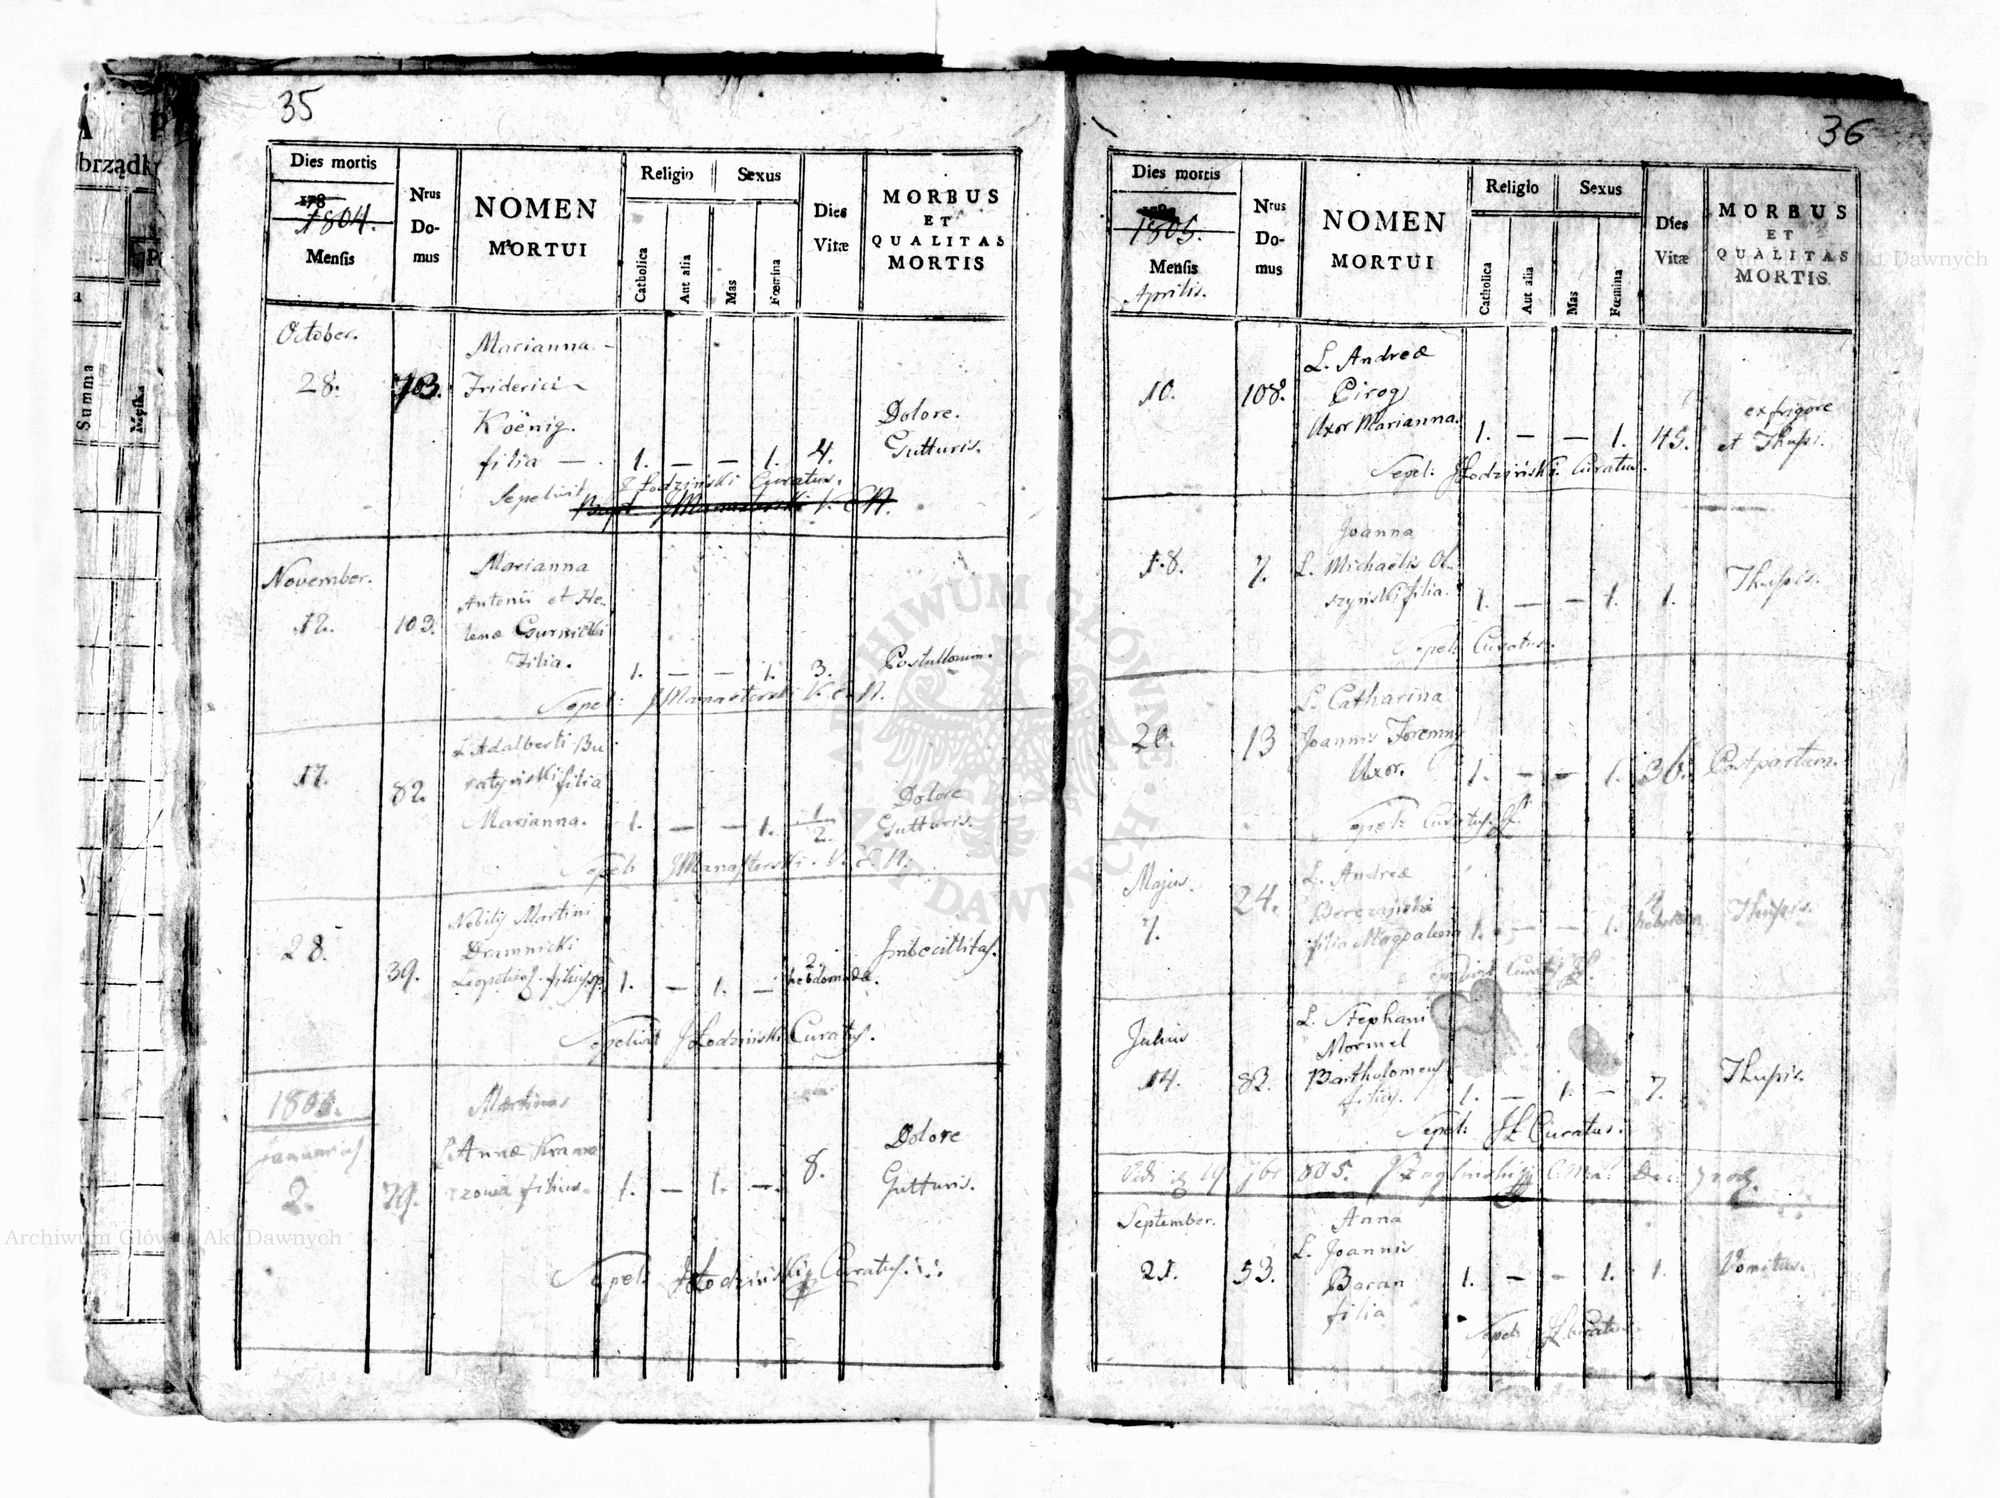 35
Dies mortis
178
1804.
Mensis
Nrus
Do-
mus
NOMEN
MORTUI
Religio
Sexus
Catholica
Aut alia
Mas
Fœmina
Dies
Vitæ
MORBUS
ET
QUALITAS
MORTIS
October.
28.
103.
Marianna -
Friderici
Koënig.
filia - .
1. - - 1. 4.
Dolore.
Gutturis.
Sepelivit J Łodziński Curatus.
Bapt. JManasterski V. C N.
November.
12.
103.
Marianna
Antonii et He-
lenæ Gurnicki
Filia.
1. - - 1. 3.
Postullorum.
Sepel: JManasterski V. C. N.
17.
82.
L Adalberti Bu
ratyński filia
Marianna.
1. - - 1. 1/2.
Dolore
Gutturis.
Sepelt JManasterski. V. C. N.
28.
39.
Nobilis Martini
Dramnicki
1. - 1. -
2.
hebdomadæ.
Imbecillitas.
Sepelivit JŁodziński Curatus.
Januarius
2.
79.
Martinus
Annæ Kramo
rzowa filius.
1. - 1. - 8.
Dolore
Gutturis.
Sepel: JŁodziński Curatus.
36
Dies mortis
1805.
Mensis
Aprilis.
Nrus
Do-
mus
NOMEN
MORTUI
Religio
Sexus
Catholica
Aut alia
Mas
Fœmina
Dies
Vitæ
MORBUS
ET
QUALITAS
MORTIS
10.
108.
L. Andreæ
Pirog
Uxor Marianna.
1. - - 1. 45.
ex frigore
et Thussi.
Sepel: JŁodziński Curatus.
18.
7.
Joanna
L. Michaelis Ol-
szyński filia.
1. - - 1. 1.
Thussis.
Sepelt Curatus.
20.
13
L. Catharina
Joannis Foremny
Uxor.
1. - - 1. 36.
Post partum.
Sepelt Curatus.
Majus.
7.
24.
L. Andreæ
filia Magdalena
1. - - 1.
4
hebdom
Thussis.
Sepelivit Curatus
Julius
14.
82.
L. Stephani
Mormel
Bartholomeus
filius.
1. - 1. - 7.
Thussis.
Sepelt JŁ Curatus.
Vidi 19 7br 805.
September.
21.
53.
Anna
L. Joannis
Baran
filia
1. - - 1. 1.
Vomitus.
Sepelt JŁ Curatus.
brządk
Summa
Archiwum Główne Akt Dawnych
ARCHIWUM GŁÓWNE AKT DAWNYCH